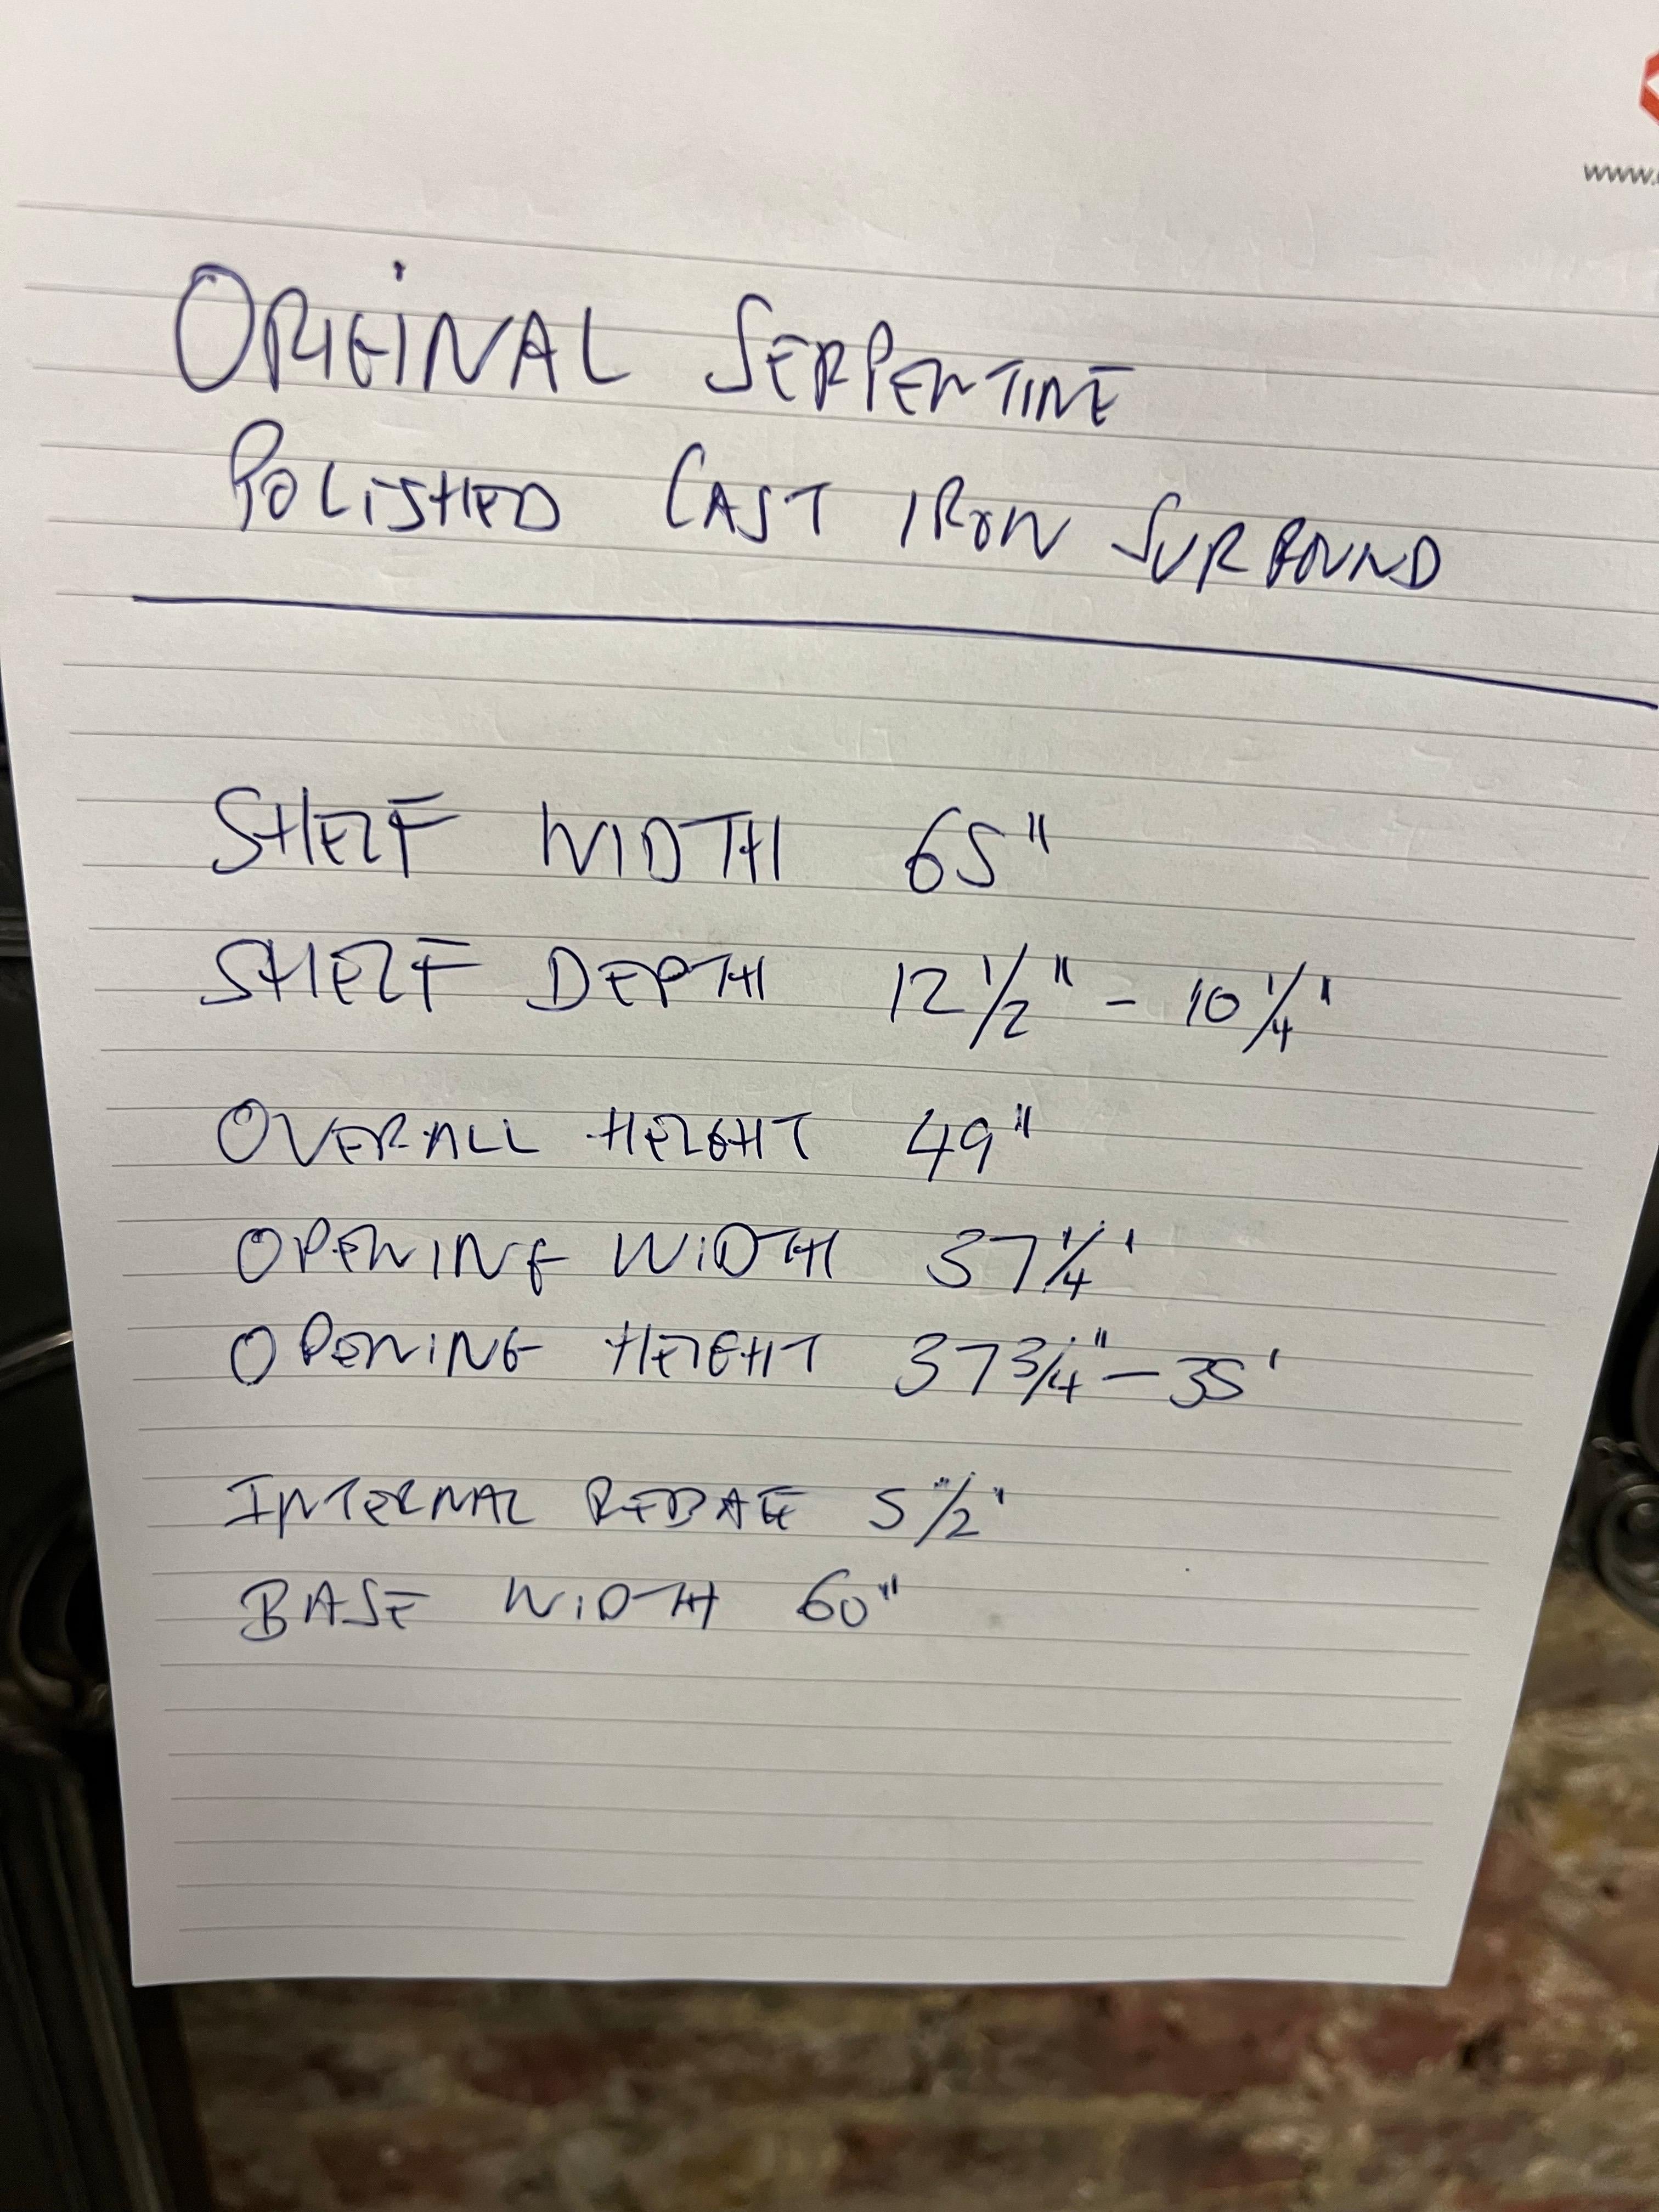 www.
ORIGINAL SERPENTINE
POLISHED CAST IRON SURROUND
SHELF WIDTH 65"
SHELF DEPTH 12 1/2" - 10 1/4"
OVERALL HEIGHT 49"
OPENING WIDTH 37 1/4'
OPENING HEIGHT 37 3/4" - 35'
INTERNAL REBATE 5 1/2"
BASE WIDTH 60"